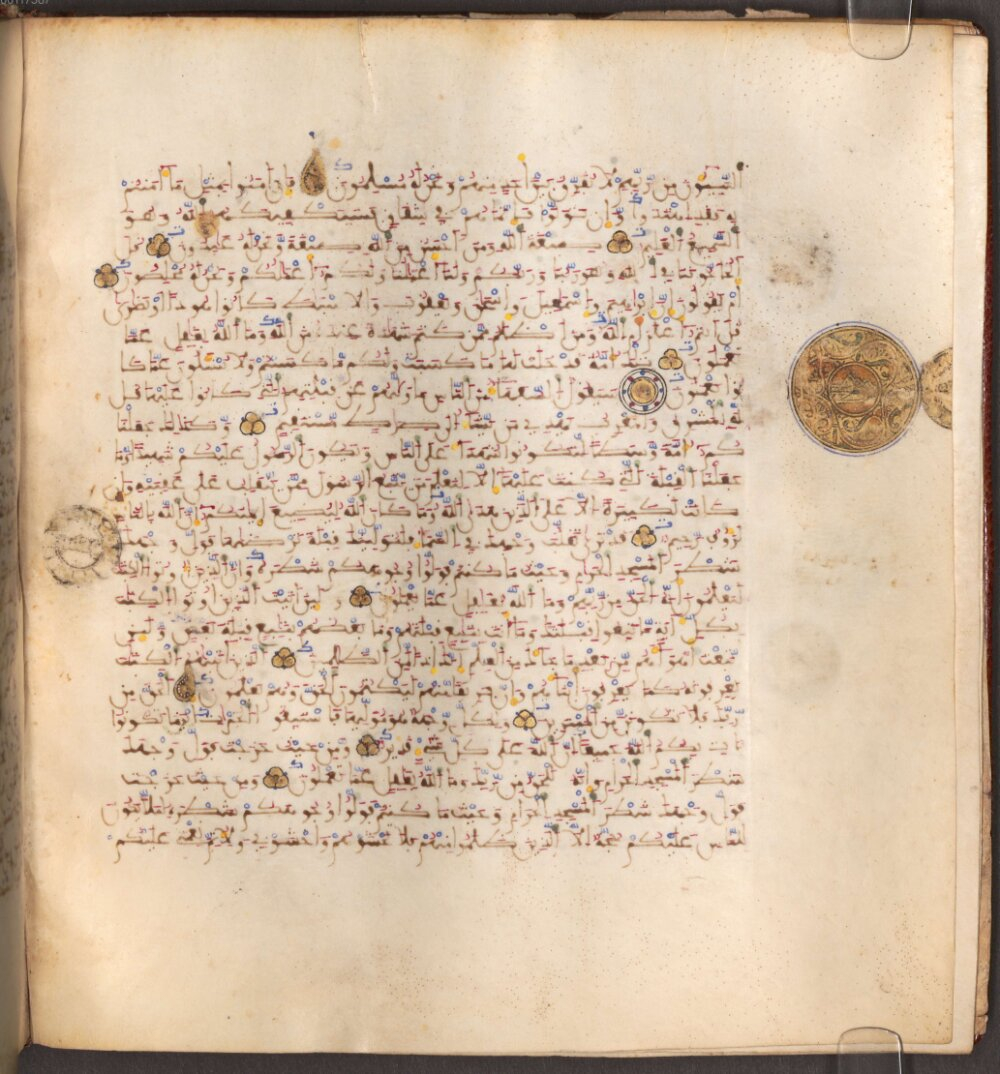 النبيئون من ربهم لا نفرق بين أحد منهم ونحن له مسلمون فإن امنوا بمثل ما امنتم
به فقد اهتدوا وإن تولوا فإنما هم في شقاق فسيكفيكهم الله وهو
السميع العليم صبغة الله ومن أحسن من الله صبغة ونحن له عبدون قل
أتحاجوننا في الله وهو ربنا وربكم ولنا أعملنا ولكم أعملكم ونحن له مخلصون
أم تقولون إن إبرهيم وإسمعيل وإسحق ويعقوب والاسباط كانوا هودا أو نصرى
قل انتم أعلم أم الله ومن أظلم ممن كتم شهدة عنده من الله وما الله بغفل عما
تعملون تلك أمة قد خلت لها ما كسبت ولكم ما كسبتم ولا تسئلون عما كا
نوا يعملون سيقول السفهاء من الناس ما وليهم عن قبلتهم التي كانوا عليها قل
لله المشرق والمغرب يهدي من يشاء الى صرط مستقيم وكذلك جعلنا
كم أمة وسطا لتكونوا شهداء على الناس ويكون الرسول عليكم شهيدا وما
جعلنا القبلة التي كنت عليها إلا لنعلم من يتبع الرسول ممن ينقلب على عقبيه وإن
كانت لكبيرة إلا على الذين هدى الله وما كان الله ليضيع إيمنكم إن الله بالناس
لرءوف رحيم قد نرى تقلب وجهك في السماء فلنولينك قبلة ترضيها فول وجهك
شطر المسجد الحرام وحيث ما كنتم فولوا وجوهكم شطره وإن الذين أوتوا الكتب
ليعلمون أنه الحق من ربهم وما الله بغفل عما يعملون ولئن أتيت الذين أوتوا الكتب
بكل ءاية ما تبعوا قبلتك وما أنت بتابع قبلتهم وما بعضهم بتابع قبلة بعض ولئن
اتبعت أهواءهم من بعد ما جاءك من العلم إنك إذا لمن الظلمين الذين ءاتينهم الكتب
يعرفونه كما يعرفون أبناءهم وإن فريقا منهم ليكتمون الحق وهم يعلمون الحق من
ربك فلا تكونن من الممترين ولكل وجهة هو موليها فاستبقوا الخيرت أين ما تكونوا
يات بكم الله جميعا إن الله على كل شيء قدير ومن حيث خرجت فول وجهك
شطر المسجد الحرام وإنه للحق من ربك وما الله بغفل عما تعملون ومن حيث خرجت
فول وجهك شطر المسجد الحرام وحيث ما كنتم فولوا وجوهكم شطره لئلا يكون
للناس عليكم حجة إلا الذين ظلموا منهم فلا تخشوهم واخشوني ولأتم نعمتي عليكم